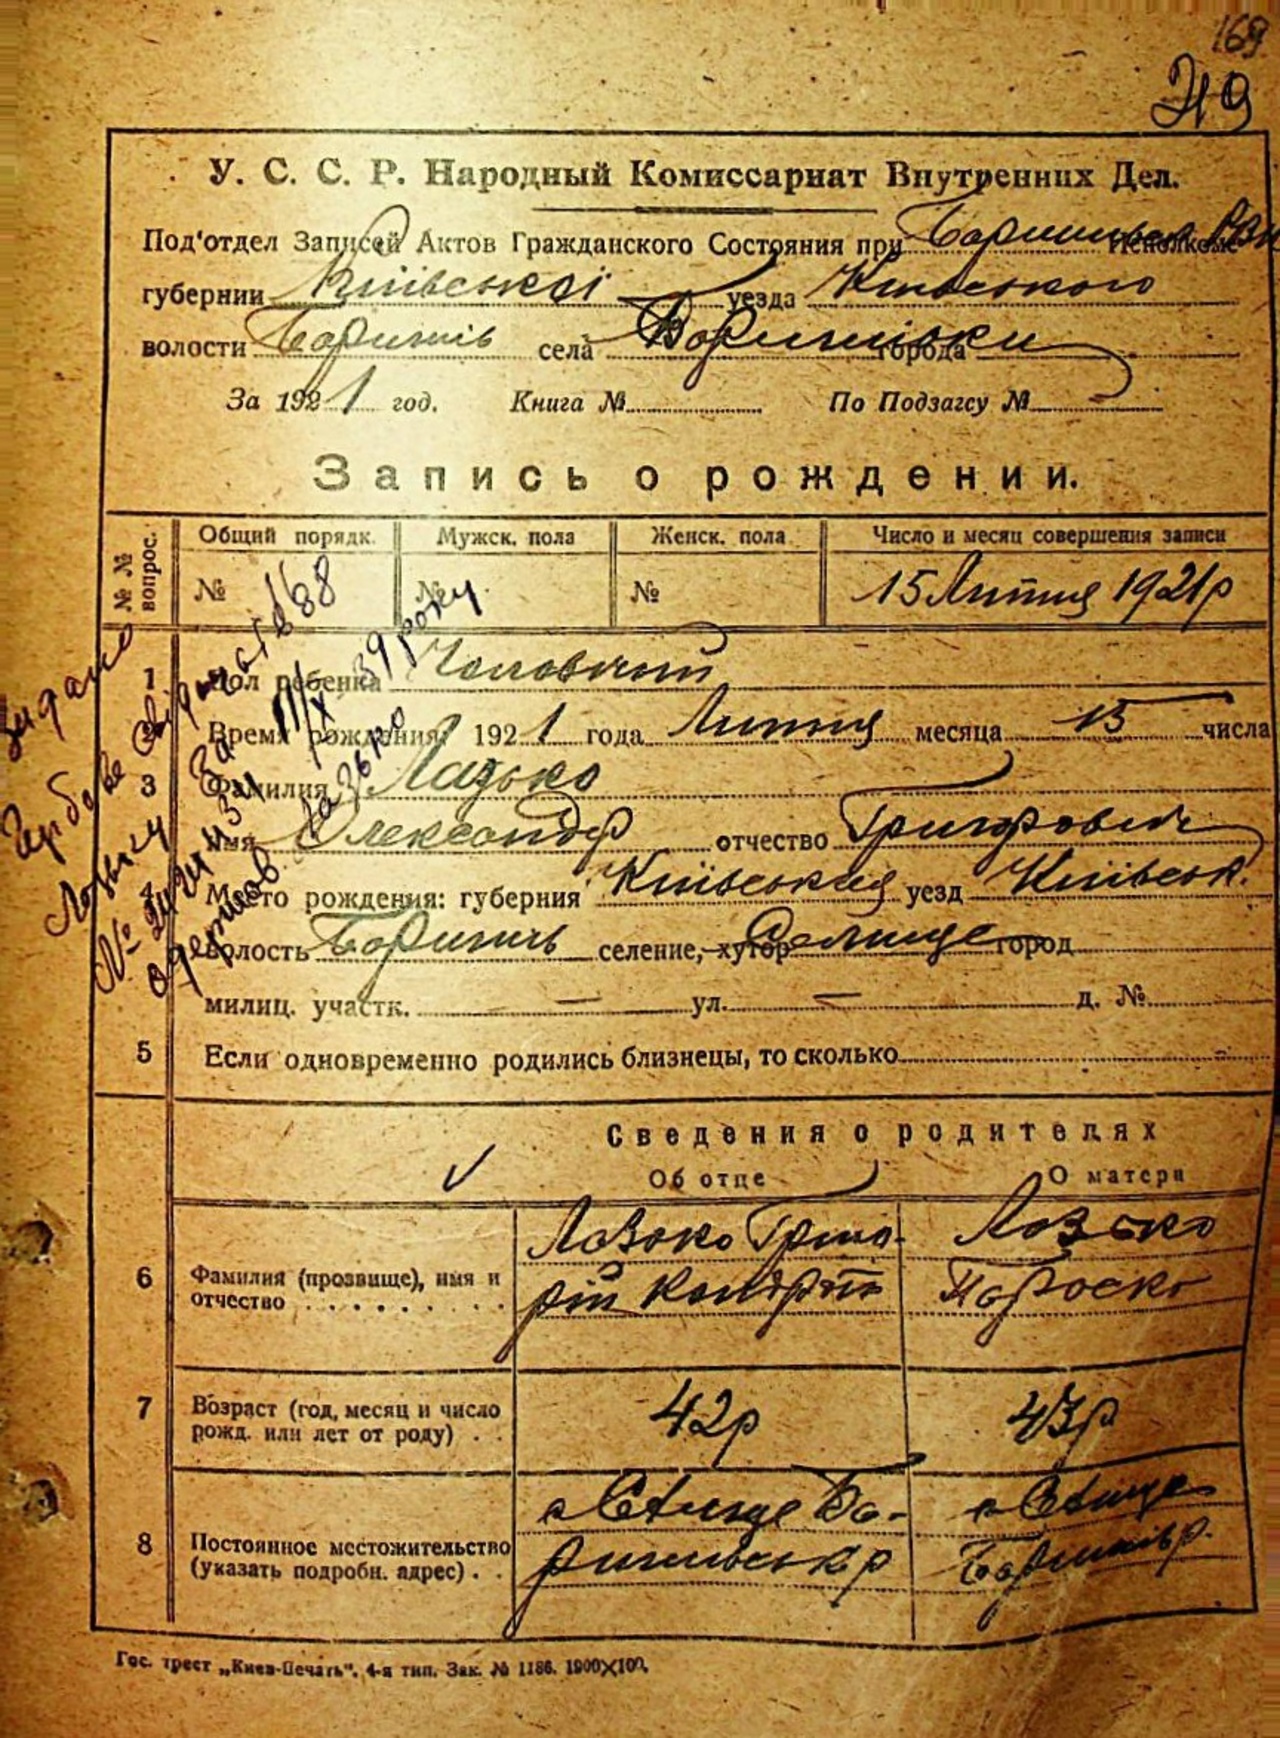 169
219
У. С. С. Р. Народный Комиссариат Внутренних Дел.
Под'отдел Записей Актов Гражданского Состояния при Исполкоме
губернии Київської уезда Київського
волости Баришів села города
За 1921 год. Книга № По Подзагсу №
Запись о рождении.
№№ вопрос. Общий порядк. Мужск. пола Женск. пола Число и месяц совершения записи
№ № № 15 Липня 1921р
1 Пол ребенка Чоловічий
2 Время рождения: 1921 года Липня месяца 15 числа
3 Фамилия Лазько
Имя Олександр отчество Григорович
4 Место рождения: губерния Київська уезд Київськ.
волость Баришів селение, хутор Селище город
милиц. участк. — ул. — д. №
5 Если одновременно родились близнецы, то сколько
Сведения о родителях
Об отце О матери
6 Фамилия (прозвище), имя и отчество Лазько Григо- Лазько
рій
7 Возраст (год, месяц и число рожд. или лет от роду) 42р 43р
8 Постоянное местожительство (указать подробн. адрес) с Селище Ба- с Селище
ришівськ р Баришів р.
Гос. трест „Киев-Печать". 4-я тип. Зак. № 1186. 1900×100.